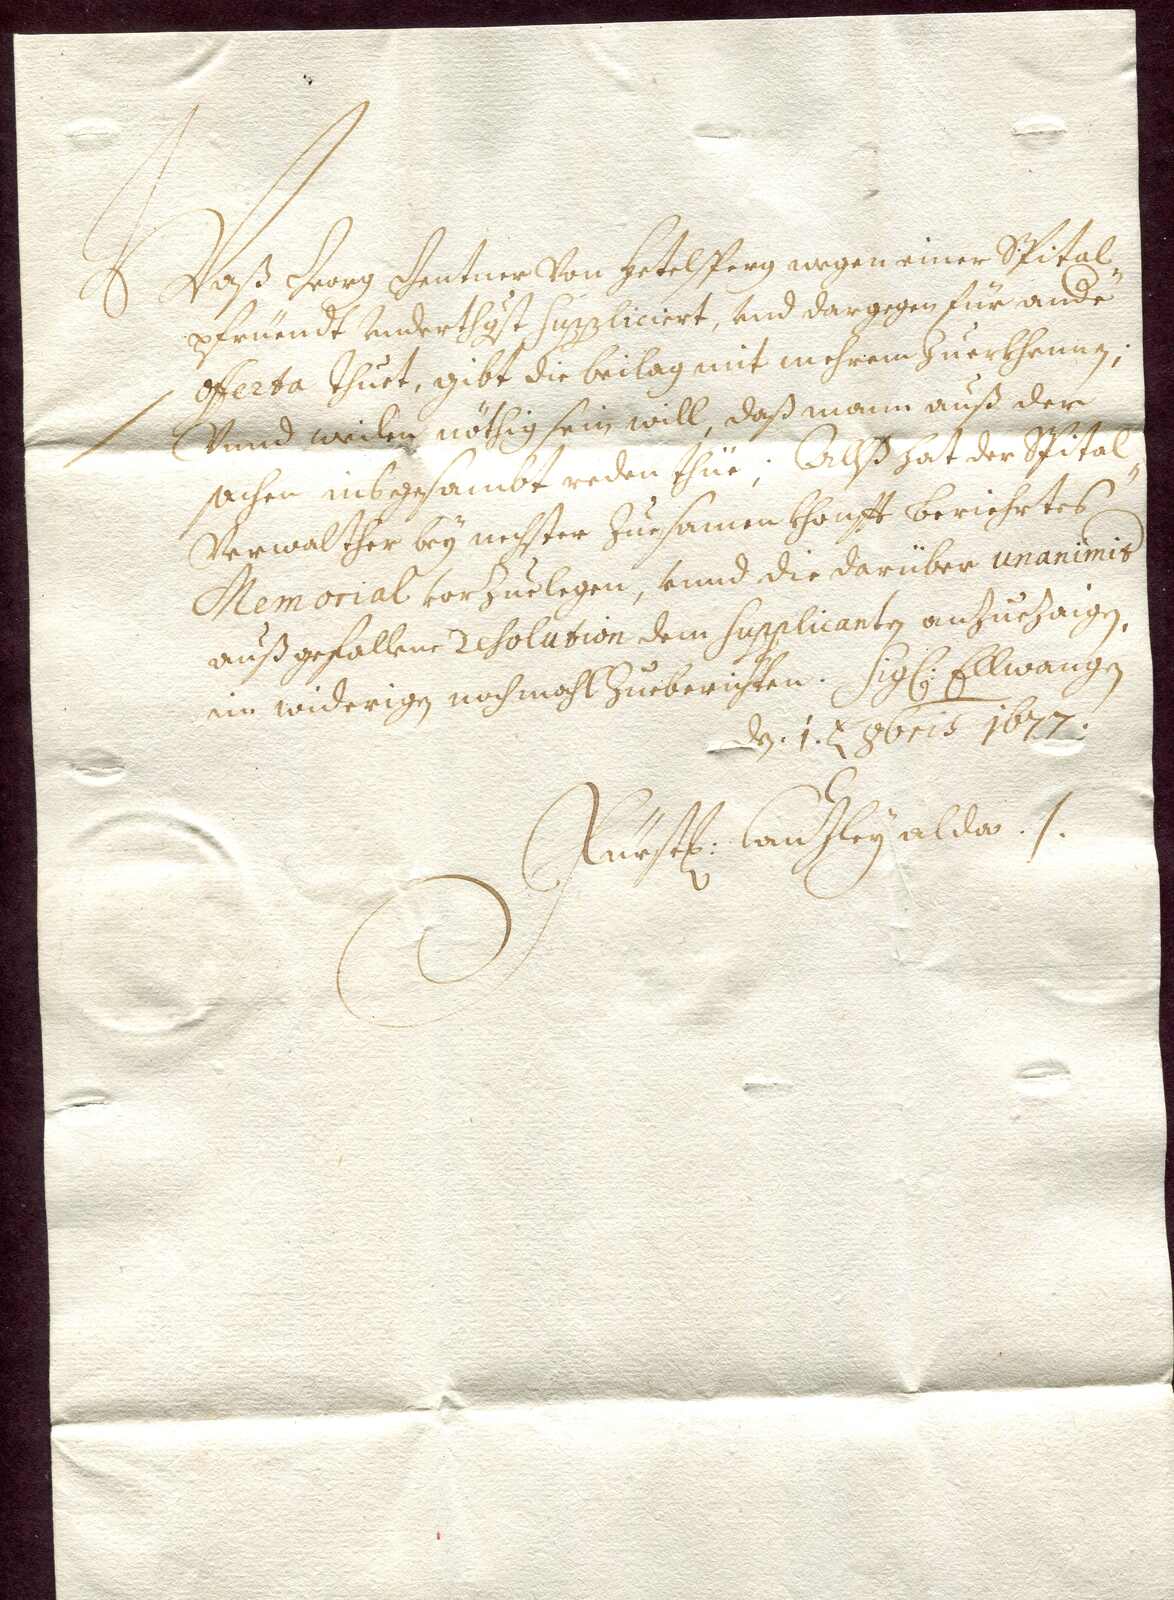 Waß Georg Rentner von Hetelsperg wegen einer Spital-
pfrüendt underthgst suppliciert, und dargegen für ande
offerta thuet, gibt die beilag mit mehrem zuerkhennen;
Unnd weilen nöthig sein will, daß mann auß der
sachen insgesambt reden thüe; Alß hat der Spital-
Verwalther bey nechster zuesamenkhonfft beriehrtes
Memorial vorzuelegen, unnd die darüber unanimis
außgefallene Resolution dem supplicanten anzuezaigen,
im widerigen nochmahl zueberichten. Sigl: Ellwangen
den. 1. 8bris 1677.
Fürstl: Canzley alda ./.